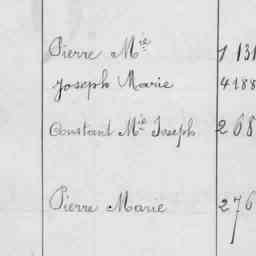 Pierre Mie 1 131
Joseph Marie 4188
Constant Mie Joseph 268
Pierre Marie 276